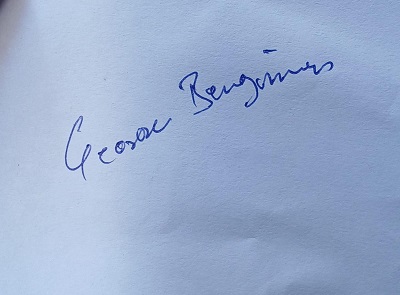 George Bengimins